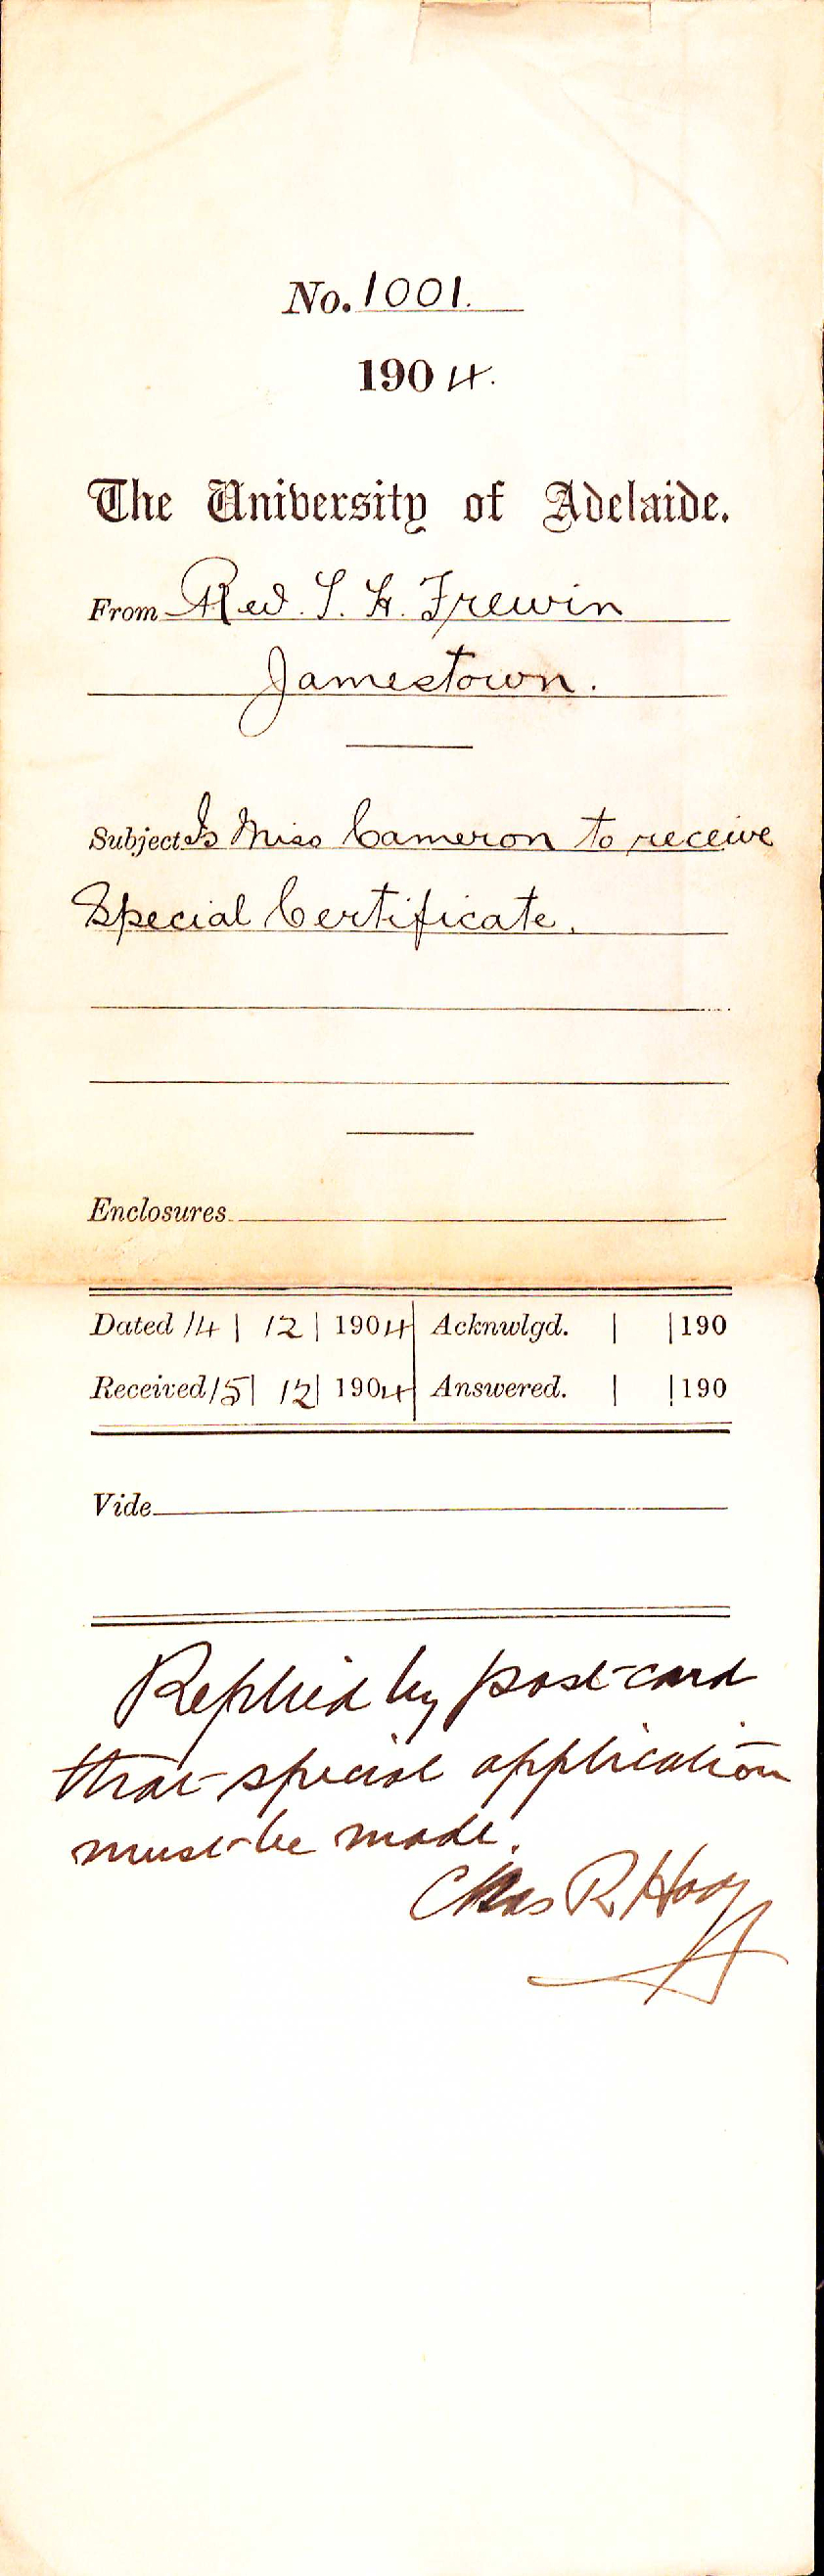 No. 1001.
1904.
The University of Adelaide.
From Rev. S. H. Frewin
Jamestown.
Subject Is Miss Cameron to receive
Special Certificate.
Enclosures
Dated 14 | 12 | 1904 Acknwlgd. | | 190
Received 15 | 12 | 1904 Answered. | | 190
Vide
Replied by post-card
that special application
must be made.
Chas R. Hodge